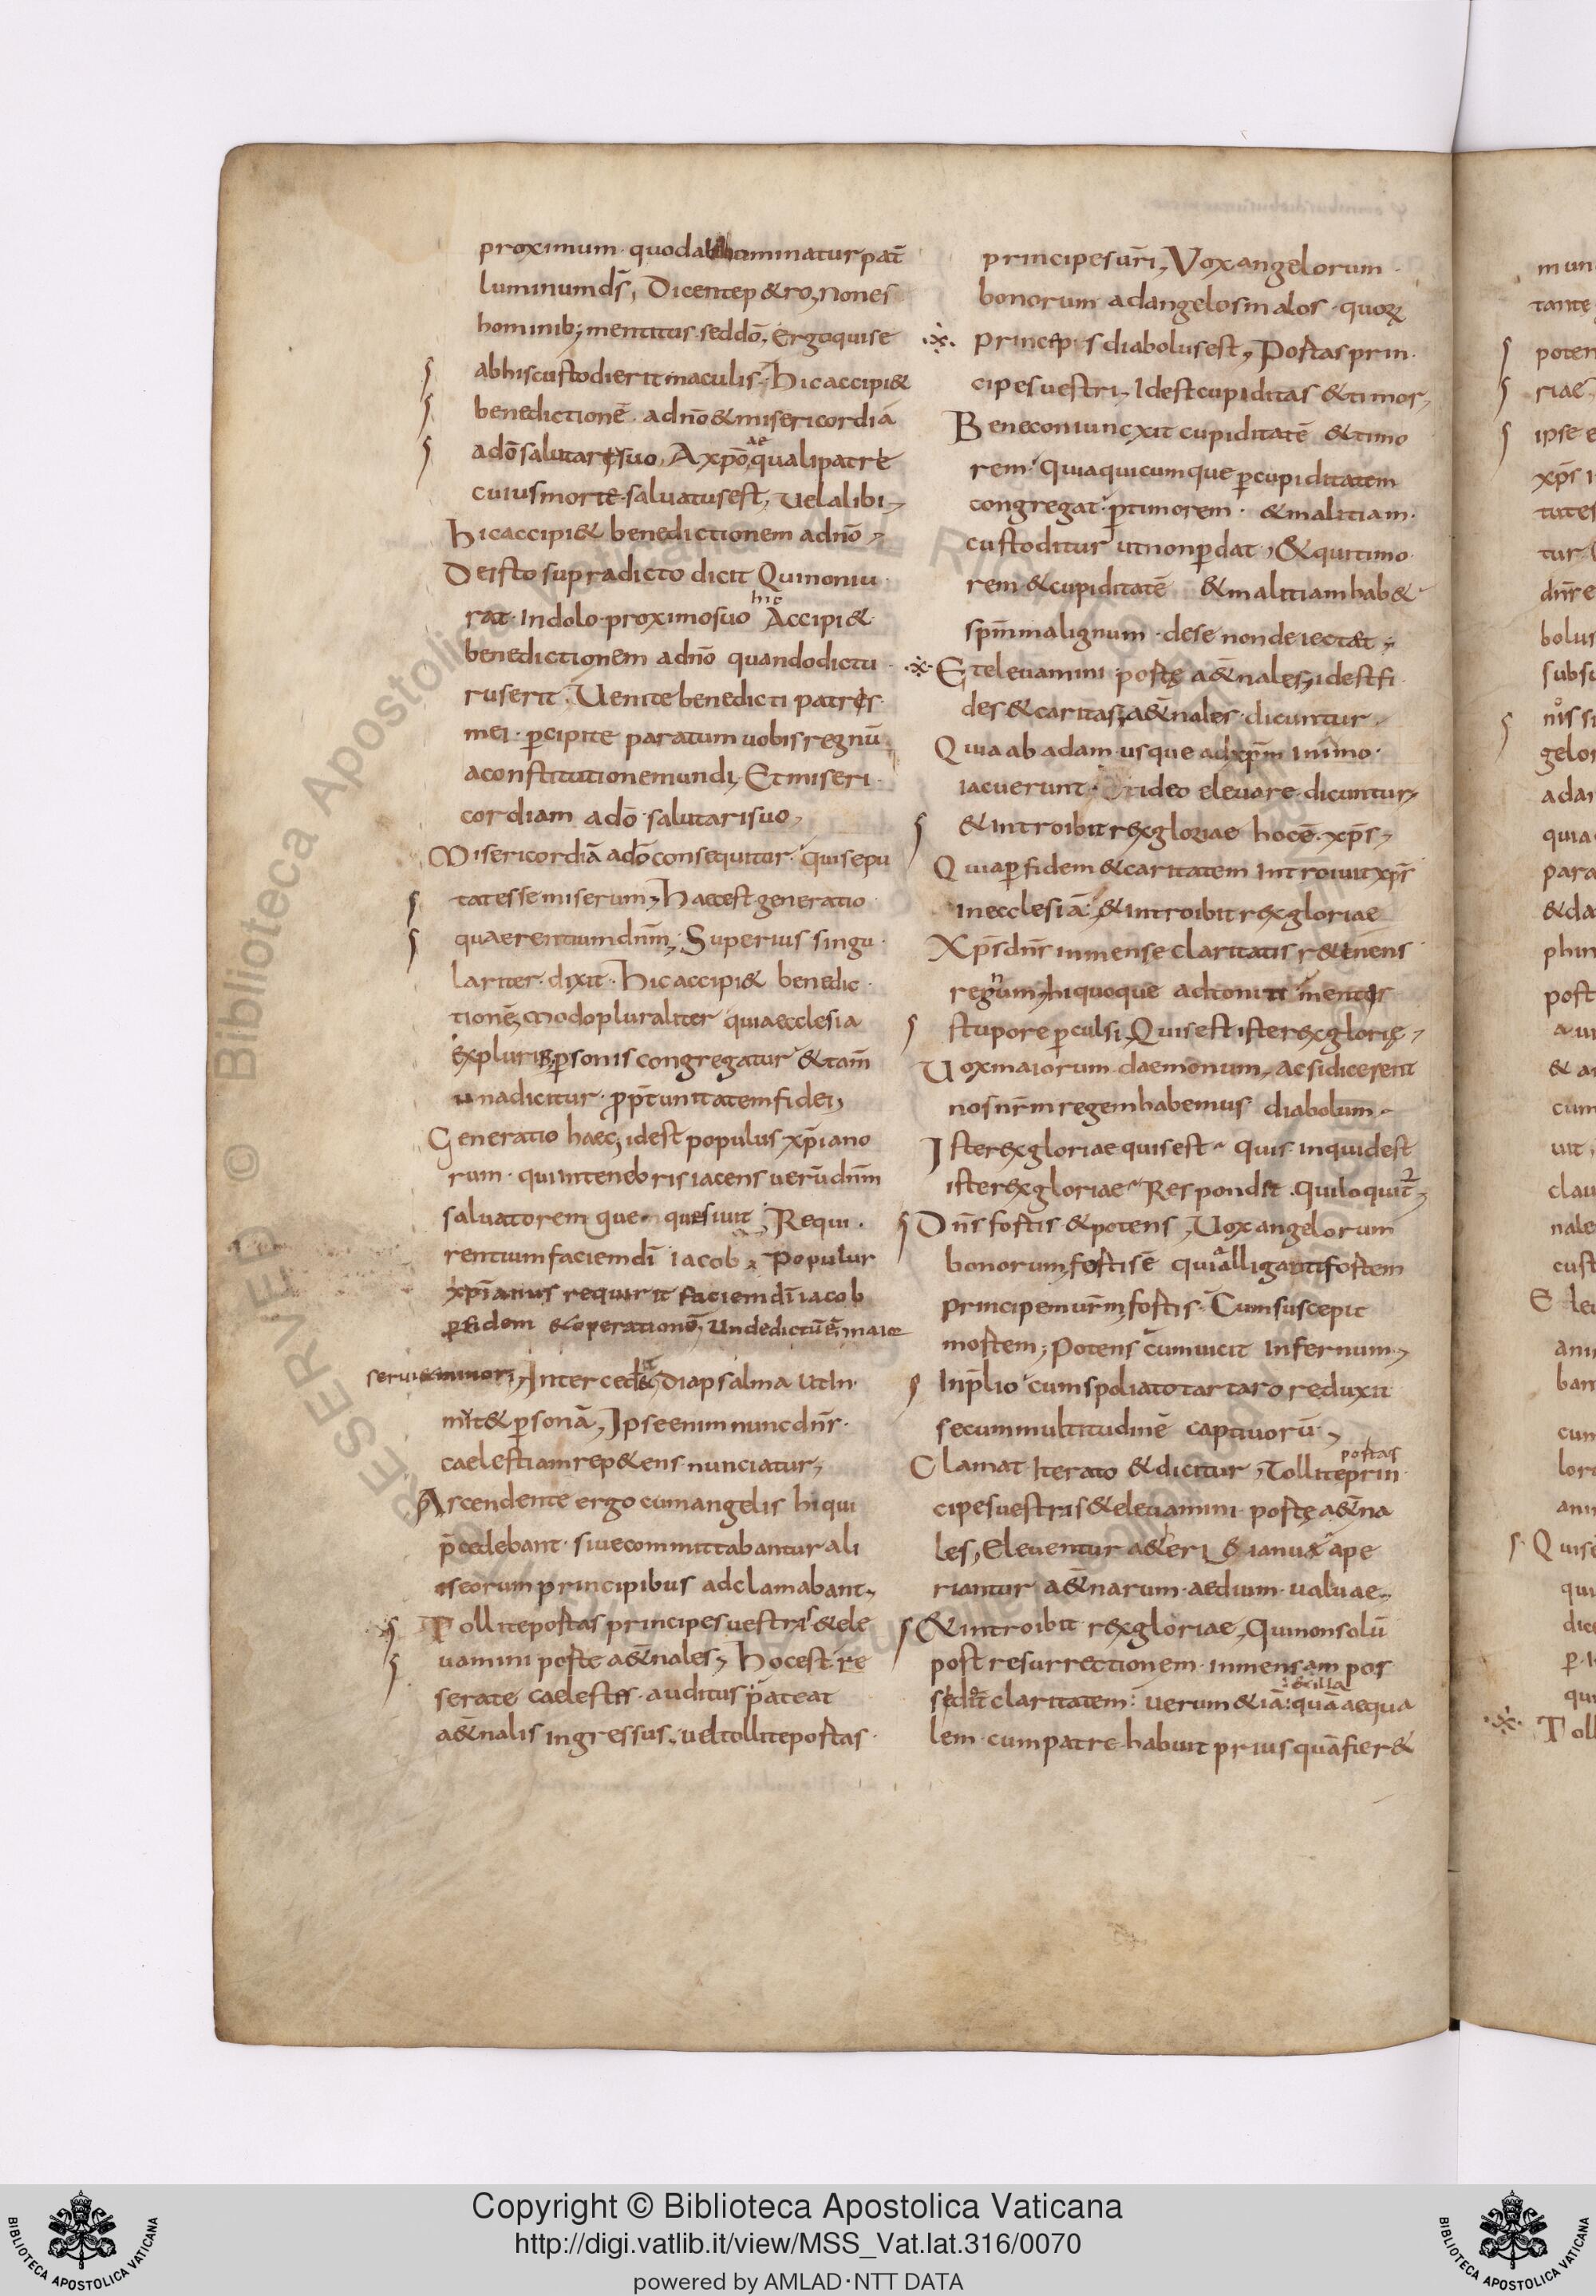 proximum · quod abhominatur pat̄
luminum ds̄, Dicente p&ro, Non es
hominib; mentitus · sed dō, Ergo qui se
ab his custodierit maculis, Hic accipi&
benedictionē · a dn̄o & misericordiā
a dō salutare suo, A xpō aequali patre
cuius morte · saluatus est, uel alibi,
Hic accipi& benedictionem a dn̄o,
De isto supradicto dicit Qui non iu
rat · In dolo · proximo suo hic Accipi&
benedictionem a dn̄o quando dictu
rus erit, Uenite benedicti patris
mei · p̄cipite paratum uobis regnū
a constitutione mundi, Et miseri
cordiam a dō · salutari suo,
Misericordiā a dō consequitur · qui se pu
tat esse miserum, Haec est generatio
quaerentium dn̄m, Superius singu
lariter · dixit · Hic accipi& benedic
tionē, modo pluraliter quia ecclesia
ex pluribus p̄sonis congregatur & tam̄
una dicitur · pp̄t unitatem fidei,
Generatio haec, idest populus xp̄iano
rum · qui in tenebris iacens uerū dn̄m
saluatorem quesiuit, Requi
rentium faciem dī iacob, Populus
xp̄ianus requirit faciem dī iacob
p̄ fidem & operationē, Unde dictū ē, maior
seruiet minori, Interced& diapsalma ut In
mut& p̄sonā, Ipse enim nunc dn̄s
caelestiam rep&ens nunciatur,
Ascendente ergo cum angelis hi qui
p̄cedebant · siue committabantur ali
is eorum principibus adclamabant,
Tollite portas principes uestri & ele
uamini porte a&nales, Hoc est re
serate caelestis · auditus pateat
a&nalis ingressus, uel tollite portas ·
principes ur̄i, Vox angelorum ·
bonorum ad angelos malos · quoꝝ
princeps diabolus est, Portas prin
cipes uestri, Idest cupiditas & timor,
Bene coniuncxit cupiditatē & timo
rem · Quia quicumque p̄ cupiditatem
congregat · p̄ timorem · & malitiam ·
custoditur ut non p̄dat, & qui timo
rem & cupiditatē & malitiam hab&
spm̄ malignum · de se non deiectat,
Et eleuamini portę a&nales, idest fi
des & caritas, a&nales · dicuntur ·
Quia ab adam · usque ad xpm̄ In imo ·
iacuerunt · ideo eleuare dicuntur,
& introibit rex gloriae hoc ē · xps̄,
Quia p̄ fidem & caritatem Introiuit xps̄
in ecclesiā, & introibit rex gloriae
Xps̄ dn̄s inmense claritatis r&inens
regnum, hi quoque adtoniti mentis
stupore p̄culsi, Quis est iste rex glorię,
Uox maiorum daemonum, ac si dicerent
nos nr̄m regem habemus diabolum,
Iste rex gloriae quis est, quis inquid est
iste rex gloriae, Respondit · qui loquit̄,
Dn̄s fortis & potens, Uox angelorum
bonorum, fortis ē quia alligauit fortem
principem ur̄m, fortis · Cum suscepit
mortem, Potens cum uicit Infernum,
In p̄lio cum spoliato tartaro reduxit
secum multitudinē captiuorū,
Clamat Iterato & dicitur, Tollite portas prin
cipes uestras & eleuamini portę a&na
les, Eleuentur a&eri & ianuę ape
riantur a&narum · aedium ualuae,
& introibit rex gloriae, Qui non solū
post resurrectionem · inmensam pos
sedit claritatem: uerum &iā & illā quā aequa
lem · cum patre habuit prius quā fier&
mun
tante
poten
riae
ipse e
xps̄
tates
tur
dn̄re
bolus
subsu
gelor
adar
quia
para
& da
phin
port
& a
cum
uit,
clau
nale
cust
E leu
ani
bam
cum
lor
ani
Quis e
qui
dic
Toll
Copyright © Biblioteca Apostolica Vaticana
http://digi.vatlib.it/view/MSS_Vat.lat.316/0070
powered by AMLAD·NTT DATA
BIBLIOTECA APOSTOLICA VATICANA
BIBLIOTECA APOSTOLICA VATICANA